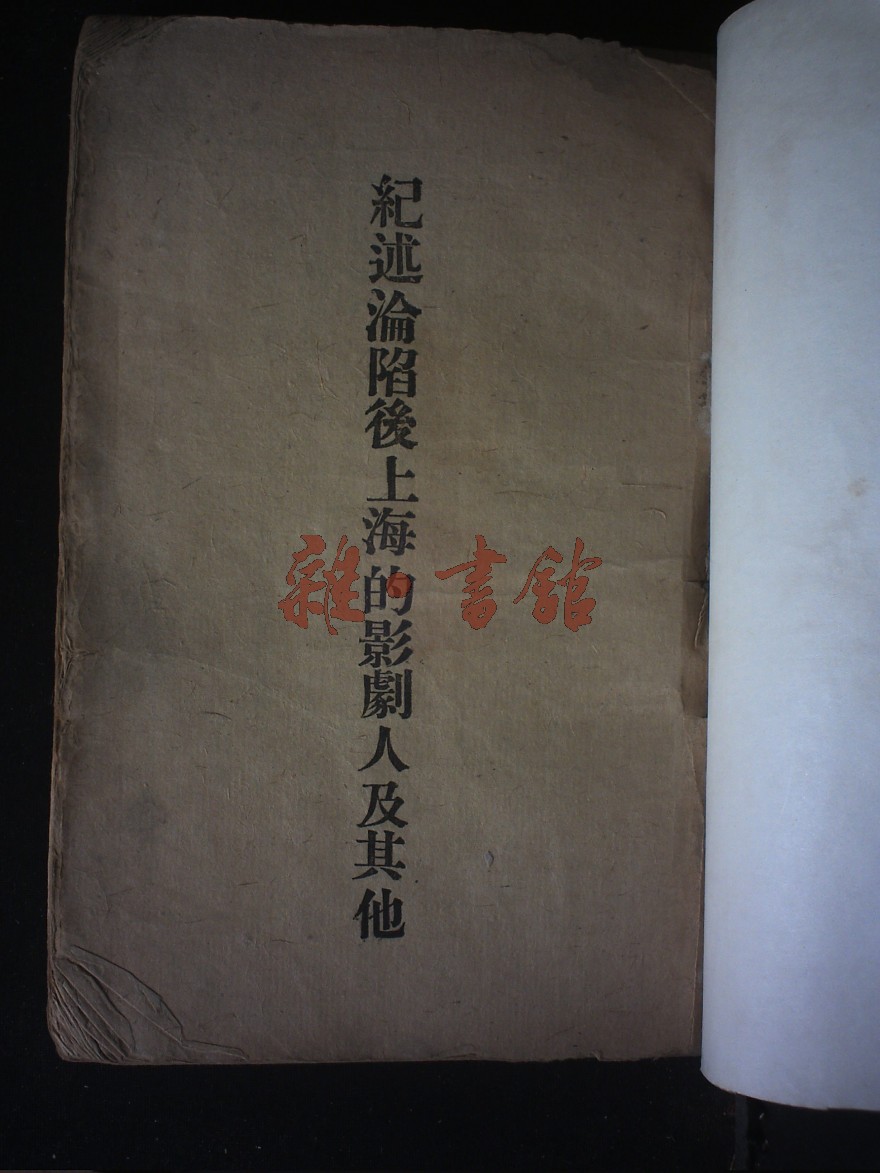 紀述淪陷後上海的影劇人及其他
雜·書館